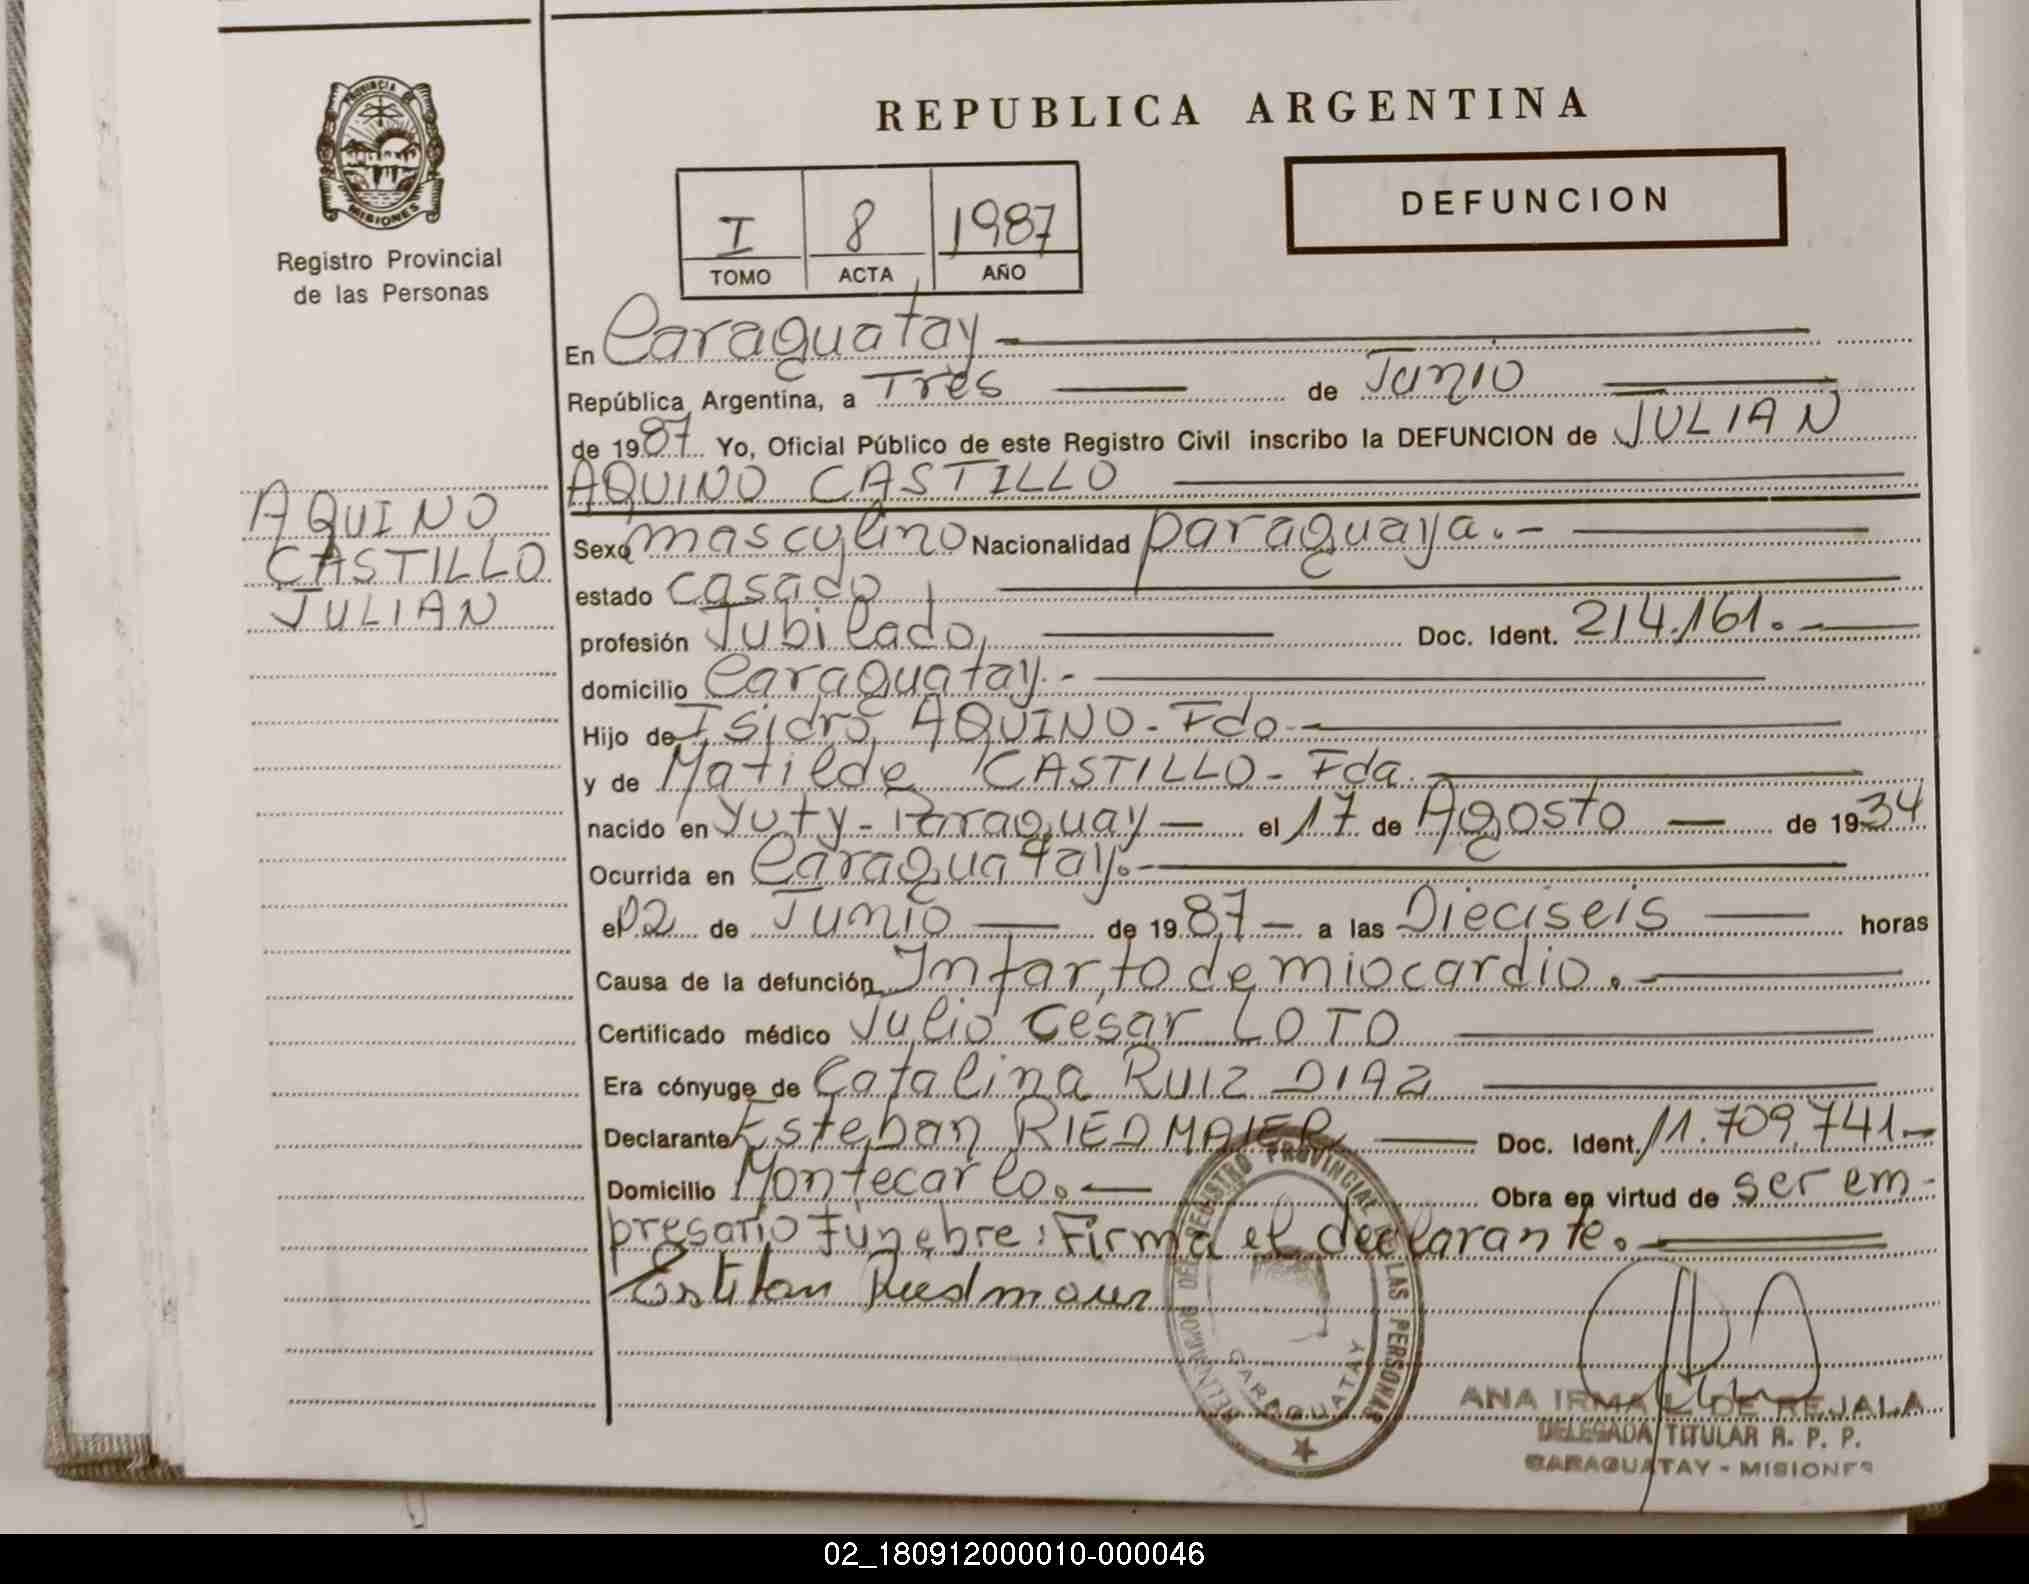 PROVINCIA DE
MISIONES
Registro Provincial
de las Personas
REPUBLICA ARGENTINA
DEFUNCION
I 8 1987
TOMO ACTA AÑO
En Caraguatay
República Argentina, a Tres de Junio
de 1987 Yo, Oficial Público de este Registro Civil inscribo la DEFUNCION de JULIAN
AQUINO CASTILLO
AQUINO
CASTILLO
JULIAN
Sexo masculino Nacionalidad paraguaya.-
estado casado
profesión Jubilado, Doc. Ident. 214.161.-
domicilio Caraguatay.-
Hijo de Isidro AQUINO-Fdo-
y de Matilde CASTILLO-Fda.
nacido en Yuty-Paraguay- el 17 de Agosto - de 1934
Ocurrida en Caraguatay.-
el 02 de Junio - de 1987- a las Dieciseis horas
Causa de la defunción Infarto de miocardio.-
Certificado médico Julio Cesar LOTO
Era cónyuge de Catalina RUIZ DIAZ
Declarante Esteban RIEDMAIER Doc. Ident. 11.709.741.-
Domicilio Montecarlo.- Obra en virtud de ser em-
presario funebre: Firma el declarante.
Esteban Riedmaier
REGISTRO PROVINCIAL DE LAS PERSONAS
CARAGUATAY
ANA IRMA L. DE REJALA
DELEGADA TITULAR R. P. P.
CARAGUATAY - MISIONES
02_180912000010-000046